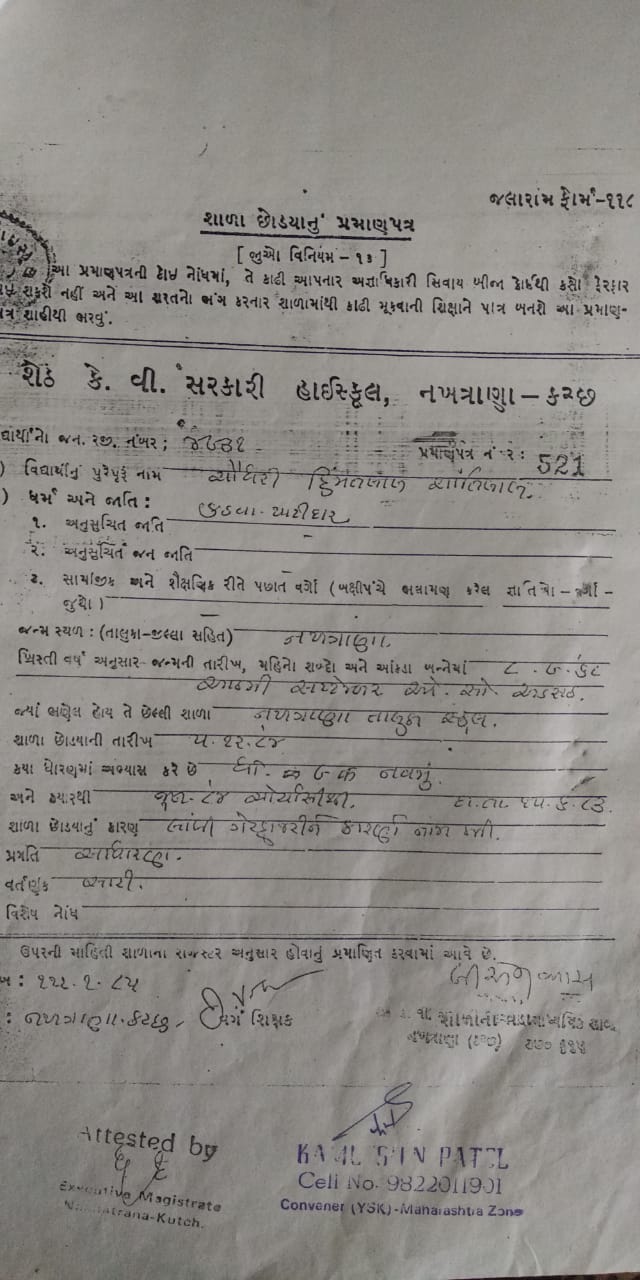 જલારામ ફોર્મ-૧૧૮
શાળા છોડયાનું પ્રમાણપત્ર
[ જુઓ વિનિયમ - ૧૬ ]
આ પ્રમાણપત્રની કોઇ નોંધમાં, તે કાઢી આપનાર સિવાય બીજા કોઈથી કશો ફેરફાર
શકશે નહીં અને આ શરતનો ભંગ કરનાર શાળામાંથી કાઢી મૂકવાની શિક્ષાને પાત્ર બનશે આ પ્રમાણ-
પત્ર શાહીથી ભરવું.
શેઠ કે. વી. સરકારી હાઈસ્કૂલ, નખત્રાણા - કચ્છ
જન. રજી. નંબર ;
પ્રમાણપત્ર નંબર : 521
) વિદ્યાર્થીનું પુરેપૂરૂં નામ ચૌધરી હિંમતલાલ શાંતિલાલ.
) ધર્મ અને જાતિ : કડવા પાટીદાર
૧. અનુસુચિત જાતિ
૨. અનુસુચિત જન જાતિ
૩. સામાજીક અને શૈક્ષણિક રીતે પછાત વર્ગો ( બક્ષીપંચે ભલામણ કરેલ જ્ઞાતિઓ - વર્ગો -
જુઓ )
જન્મ સ્થળ : (તાલુકા-જીલ્લા સહિત) નખત્રાણા.
ખ્રિસ્તી વર્ષ અનુસાર જન્મની તારીખ, મહિનો શબ્દો અને આંકડા બન્નેમાં ૮ . ૯ . ૬૮
આઠમી સપ્ટેમ્બર ઓ. સો અડસઠ.
જ્યાં ભણેલ હોય તે છેલ્લી શાળા નખત્રાણા તાલુકા સ્કૂલ.
શાળા છોડયાની તારીખ ૫.૧૨.૮૪
કયા ધોરણમાં અભ્યાસ કરે છે ધો. ૯ ક નવમું.
અને કયારથી જૂન-૮૪ ચોર્યાસીથી. દા.તા. ૧૫.૬.૮૩.
શાળા છોડયાનું કારણ લાંબી ગેરહાજરીને કારણે નામ કમી.
પ્રગતિ સાધારણ.
વર્તણુંક સારી.
વિશેષ નોંધ
ઉપરની માહિતી શાળાના રજીસ્ટર અનુસાર હોવાનું પ્રમાણિત કરવામાં આવે છે.
: નખત્રાણા-કચ્છ. વર્ગ શિક્ષક
નખત્રાણા (કચ્છ) ૩૭૦ ૬૧૫
Attested by
Executive Magistrate
Nakhatrana-Kutch.
PATEL
Cell No. 9822011901
Convener (YSK)-Maharashtra Zone